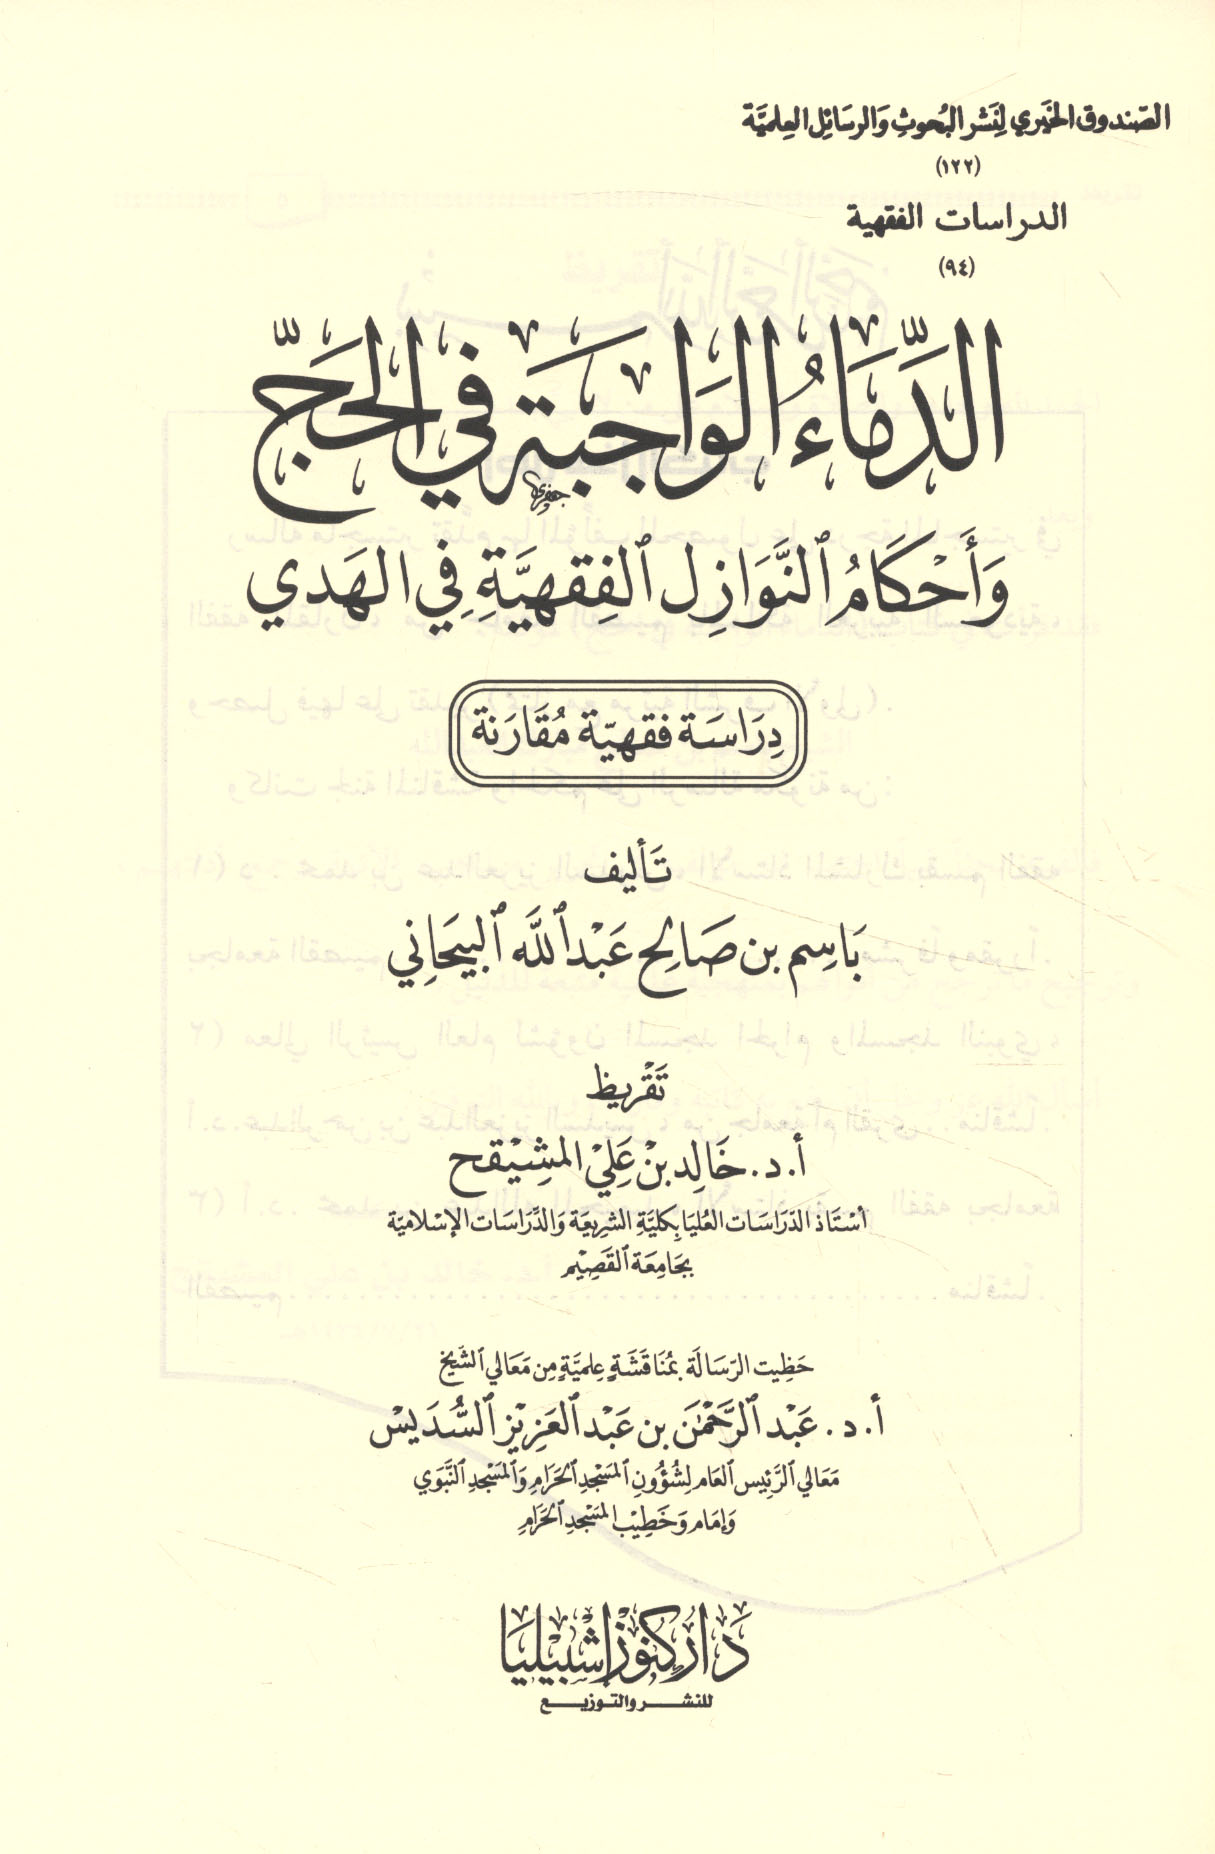 الصندوق الخيري لنشر البحوث والرسائل العلمية
(١٢٢)
الدراسات الفقهية
(٩٤)
الدِّمَاءُ الوَاجِبَة فِي الحَجّ
وَأَحْكَامُ النَّوَازِلِ الفِقهِيَّةِ فِي الهَدي
دِرَاسَة فقهِيّة مُقَارَنة
تَأليف
بَاسِم بن صَالِح عَبْد اللَّه البيحَانِي
تَقْريظ
أ.د. خَالِد بْن عَلِيْ المشَيْقِح
أسْتَاذ الدّرَاسَات العُليَا بِكليَّة الشريعَة وَالدِّرَاسَات الإسْلاميّة
بجَامِعَة القَصِيْم
حَظِيت الرّسَالَة بمُنَاقَشَةٍ عِلميَّةٍ مِن مَعَالي الشَّيخ
أ.د. عَبْد الرَّحْمٰن بن عَبْد العَزيْز السُّدَيسْ
مَعَالي الرَّئيس العَام لشُؤُونِ المَسْجدِ الحَرَامِ وَالمَسْجدِ النَّبَوي
وَإمَام وَخَطِيْب المَسْجدِ الحَرَامِ
دَار كنُوز إشبيْليَا
للنشر والتوزيع